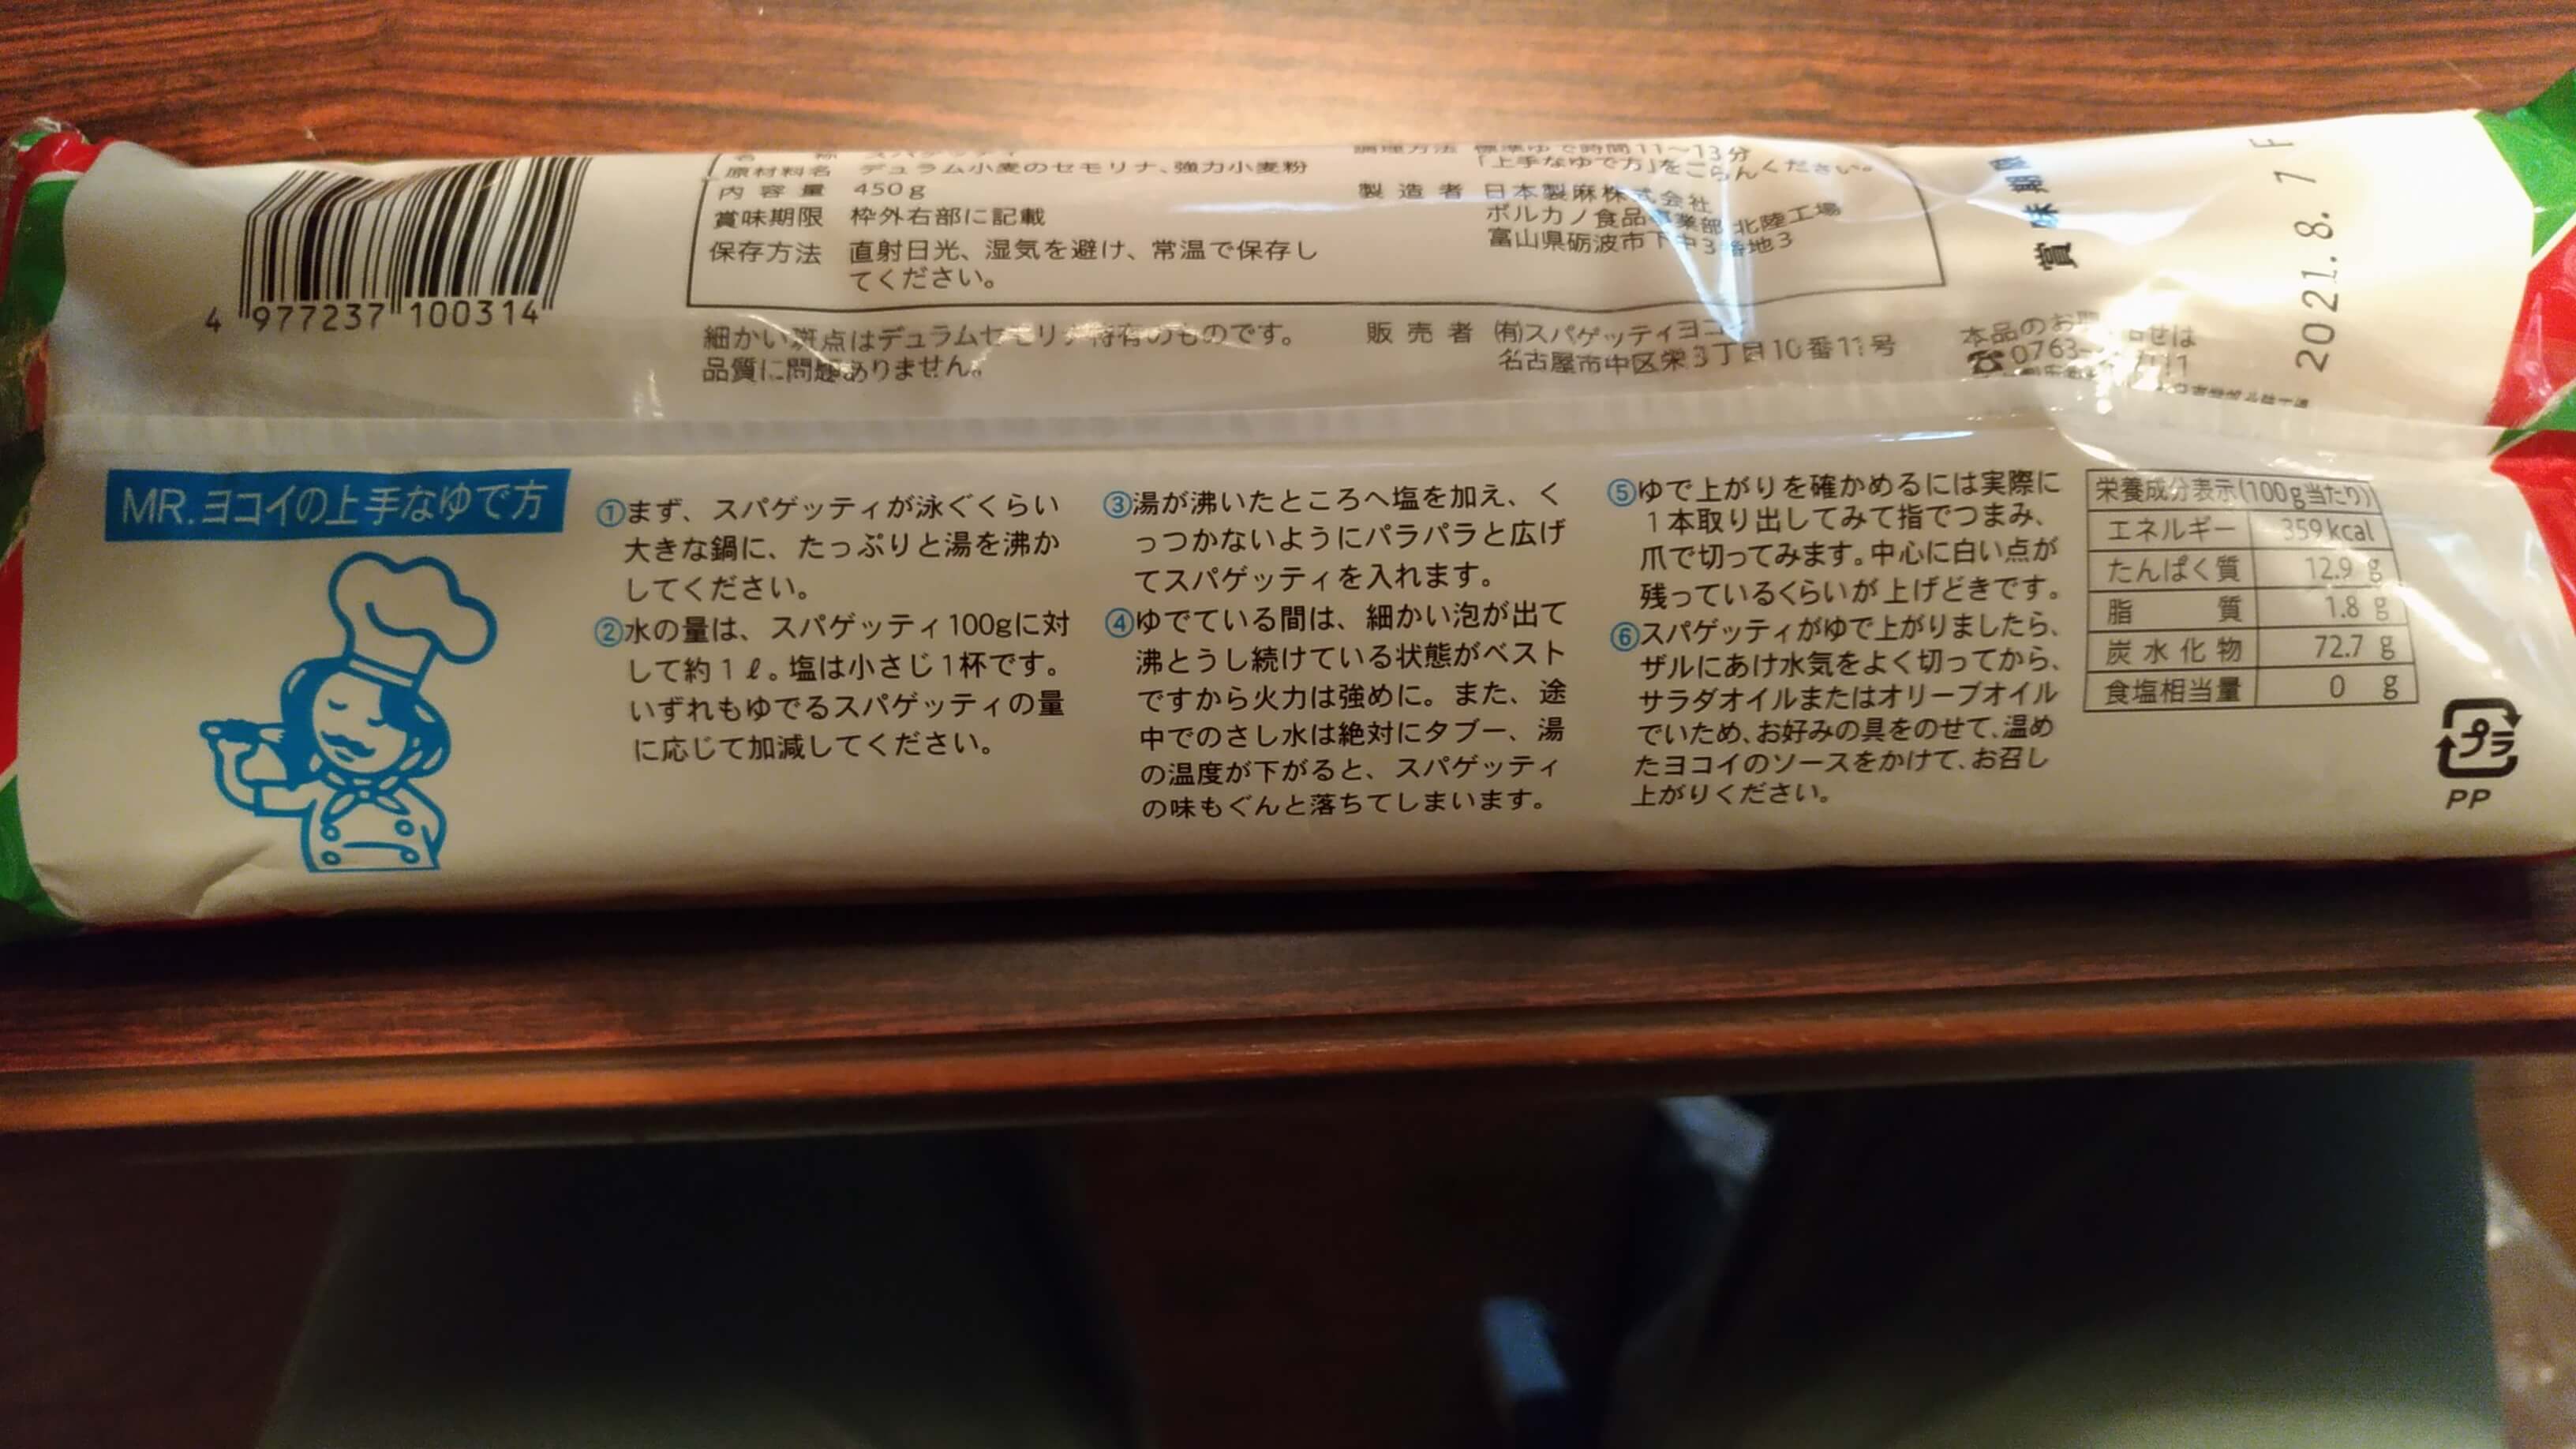 原材料名 デュラム小麦のセモリナ、強力小麦粉
内容量 450g
賞味期限 枠外右部に記載
保存方法 直射日光、湿気を避け、常温で保存し
てください。
調理方法 標準ゆで時間11～13分
「上手なゆで方」をごらんください。
製造者 日本製麻株式会社
ボルカノ食品事業部 北陸工場
富山県砺波市下中3番地3
賞味期限
2021.8.7 F
4 977237 100314
細かい斑点はデュラムセモリナ特有のものです。
品質に問題ありません。
販売者 (有)スパゲッティヨコイ
名古屋市中区栄3丁目10番11号
本品のお
せは
☎0763-
MR.ヨコイの上手なゆで方
①まず、スパゲッティが泳ぐくらい
大きな鍋に、たっぷりと湯を沸か
してください。
②水の量は、スパゲッティ100gに対
して約1ℓ。塩は小さじ1杯です。
いずれもゆでるスパゲッティの量
に応じて加減してください。
③湯が沸いたところへ塩を加え、く
っつかないようにパラパラと広げ
てスパゲッティを入れます。
④ゆでている間は、細かい泡が出て
沸とうし続けている状態がベスト
ですから火力は強めに。また、途
中でのさし水は絶対にタブー、湯
の温度が下がると、スパゲッティ
の味もぐんと落ちてしまいます。
⑤ゆで上がりを確かめるには実際に
1本取り出してみて指でつまみ、
爪で切ってみます。中心に白い点が
残っているくらいが上げどきです。
⑥スパゲッティがゆで上がりましたら、
ザルにあけ水気をよく切ってから、
サラダオイルまたはオリーブオイル
でいため、お好みの具をのせて、温め
たヨコイのソースをかけて、お召し
上がりください。
栄養成分表示(100g当たり)
エネルギー 359kcal
たんぱく質 12.9 g
脂質 1.8 g
炭水化物 72.7 g
食塩相当量 0 g
プラ
PP